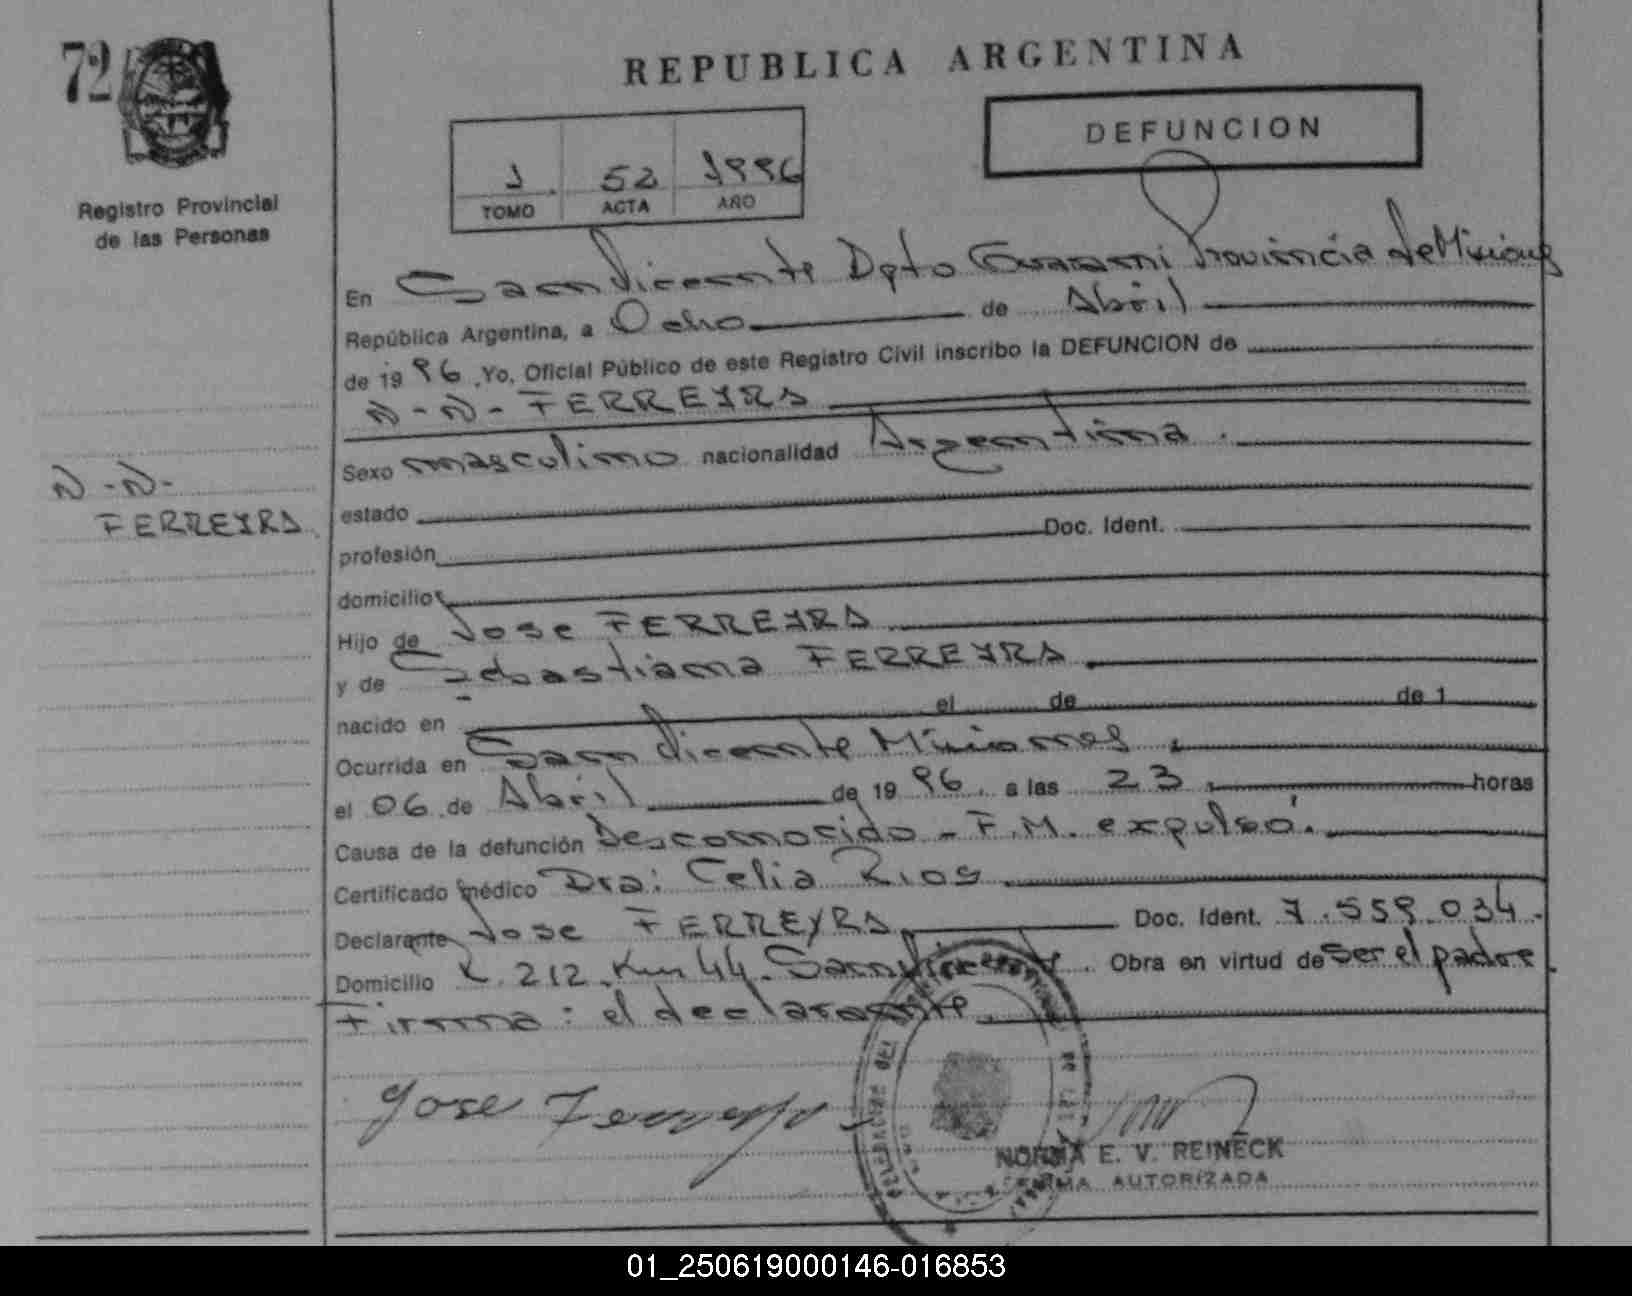 72
REPUBLICA ARGENTINA
DEFUNCION
1 52 1996
TOMO ACTA AÑO
Registro Provincial
de las Personas
En San Vicente Dpto Guarani Provincia de Misiones
República Argentina, a Ocho de Abril
de 19 96 .Yo, Oficial Público de este Registro Civil inscribo la DEFUNCION de
N-N- FERREYRA
Sexo masculino nacionalidad Argentina.
N-N-
FERREYRA
estado
profesión Doc. Ident.
domicilio
Hijo de Jose FERREYRA
y de Sebastiana FERREYRA
nacido en el de de 1
Ocurrida en San Vicente Misiones
el 06 de Abril de 19 96. a las 23 horas
Causa de la defunción Desconocido - F.M. expulsó.
Certificado médico Dra: Celia Rios
Declarante Jose FERREYRA Doc. Ident. 7.559.034.
Domicilio K. 212. Km 44. San Vicente. Obra en virtud de ser el padre.
Firma: el declarante.
Jose
NORMA E. V. REINECK
FIRMA AUTORIZADA
01_250619000146-016853